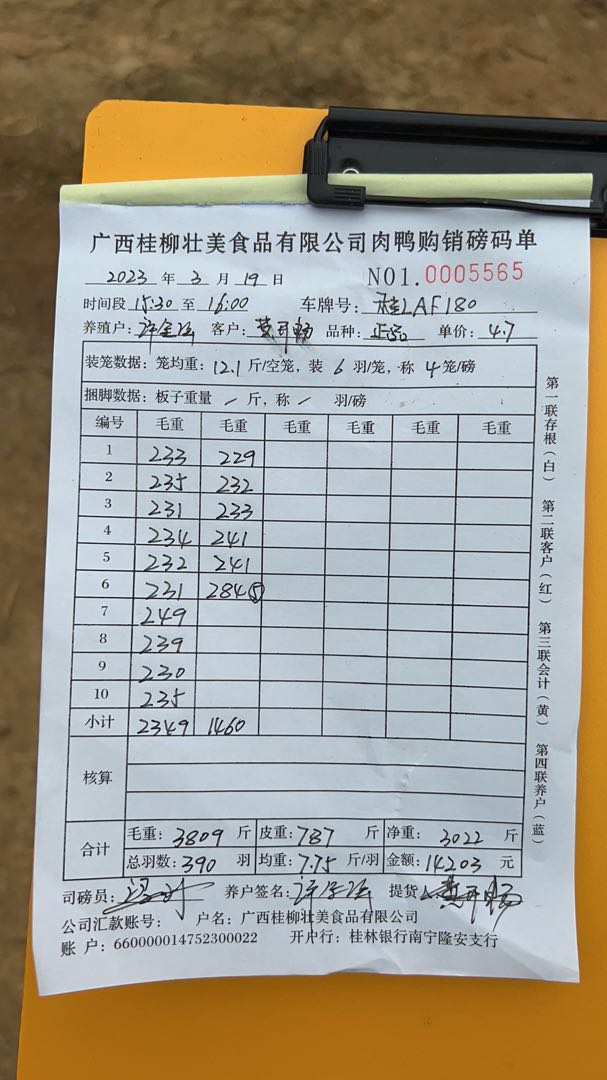 广西桂柳壮美食品有限公司肉鸭购销磅码单
2023 年 3 月 19 日 NO1.0005565
时间段 15:30 至 16:00 车牌号: 桂LAF180
养殖户: 客户: 品种: 正品 单价: 4.7
装笼数据: 笼均重: 12.1 斤/空笼, 装 6 羽/笼, 称 4 笼/磅
捆脚数据: 板子重量 / 斤, 称 / 羽/磅
编号 毛重 毛重 毛重 毛重 毛重 毛重
1 233 229
2 235 232
3 231 233
4 234 241
5 232 241
6 231 284⑤
7 249
8 239
9 230
10 235
小计 2349 1460
核算
合计
毛重: 3809 斤 皮重: 787 斤 净重: 3022 斤
总羽数: 390 羽 均重: 7.75 斤/羽 金额: 14203 元
司磅员: 养户签名: 提货
公司汇款账号: 户名: 广西桂柳壮美食品有限公司
账 户: 660000014752300022 开户行: 桂林银行南宁隆安支行
第一联存根(白) 第二联客户(红) 第三联会计(黄) 第四联养户(蓝)